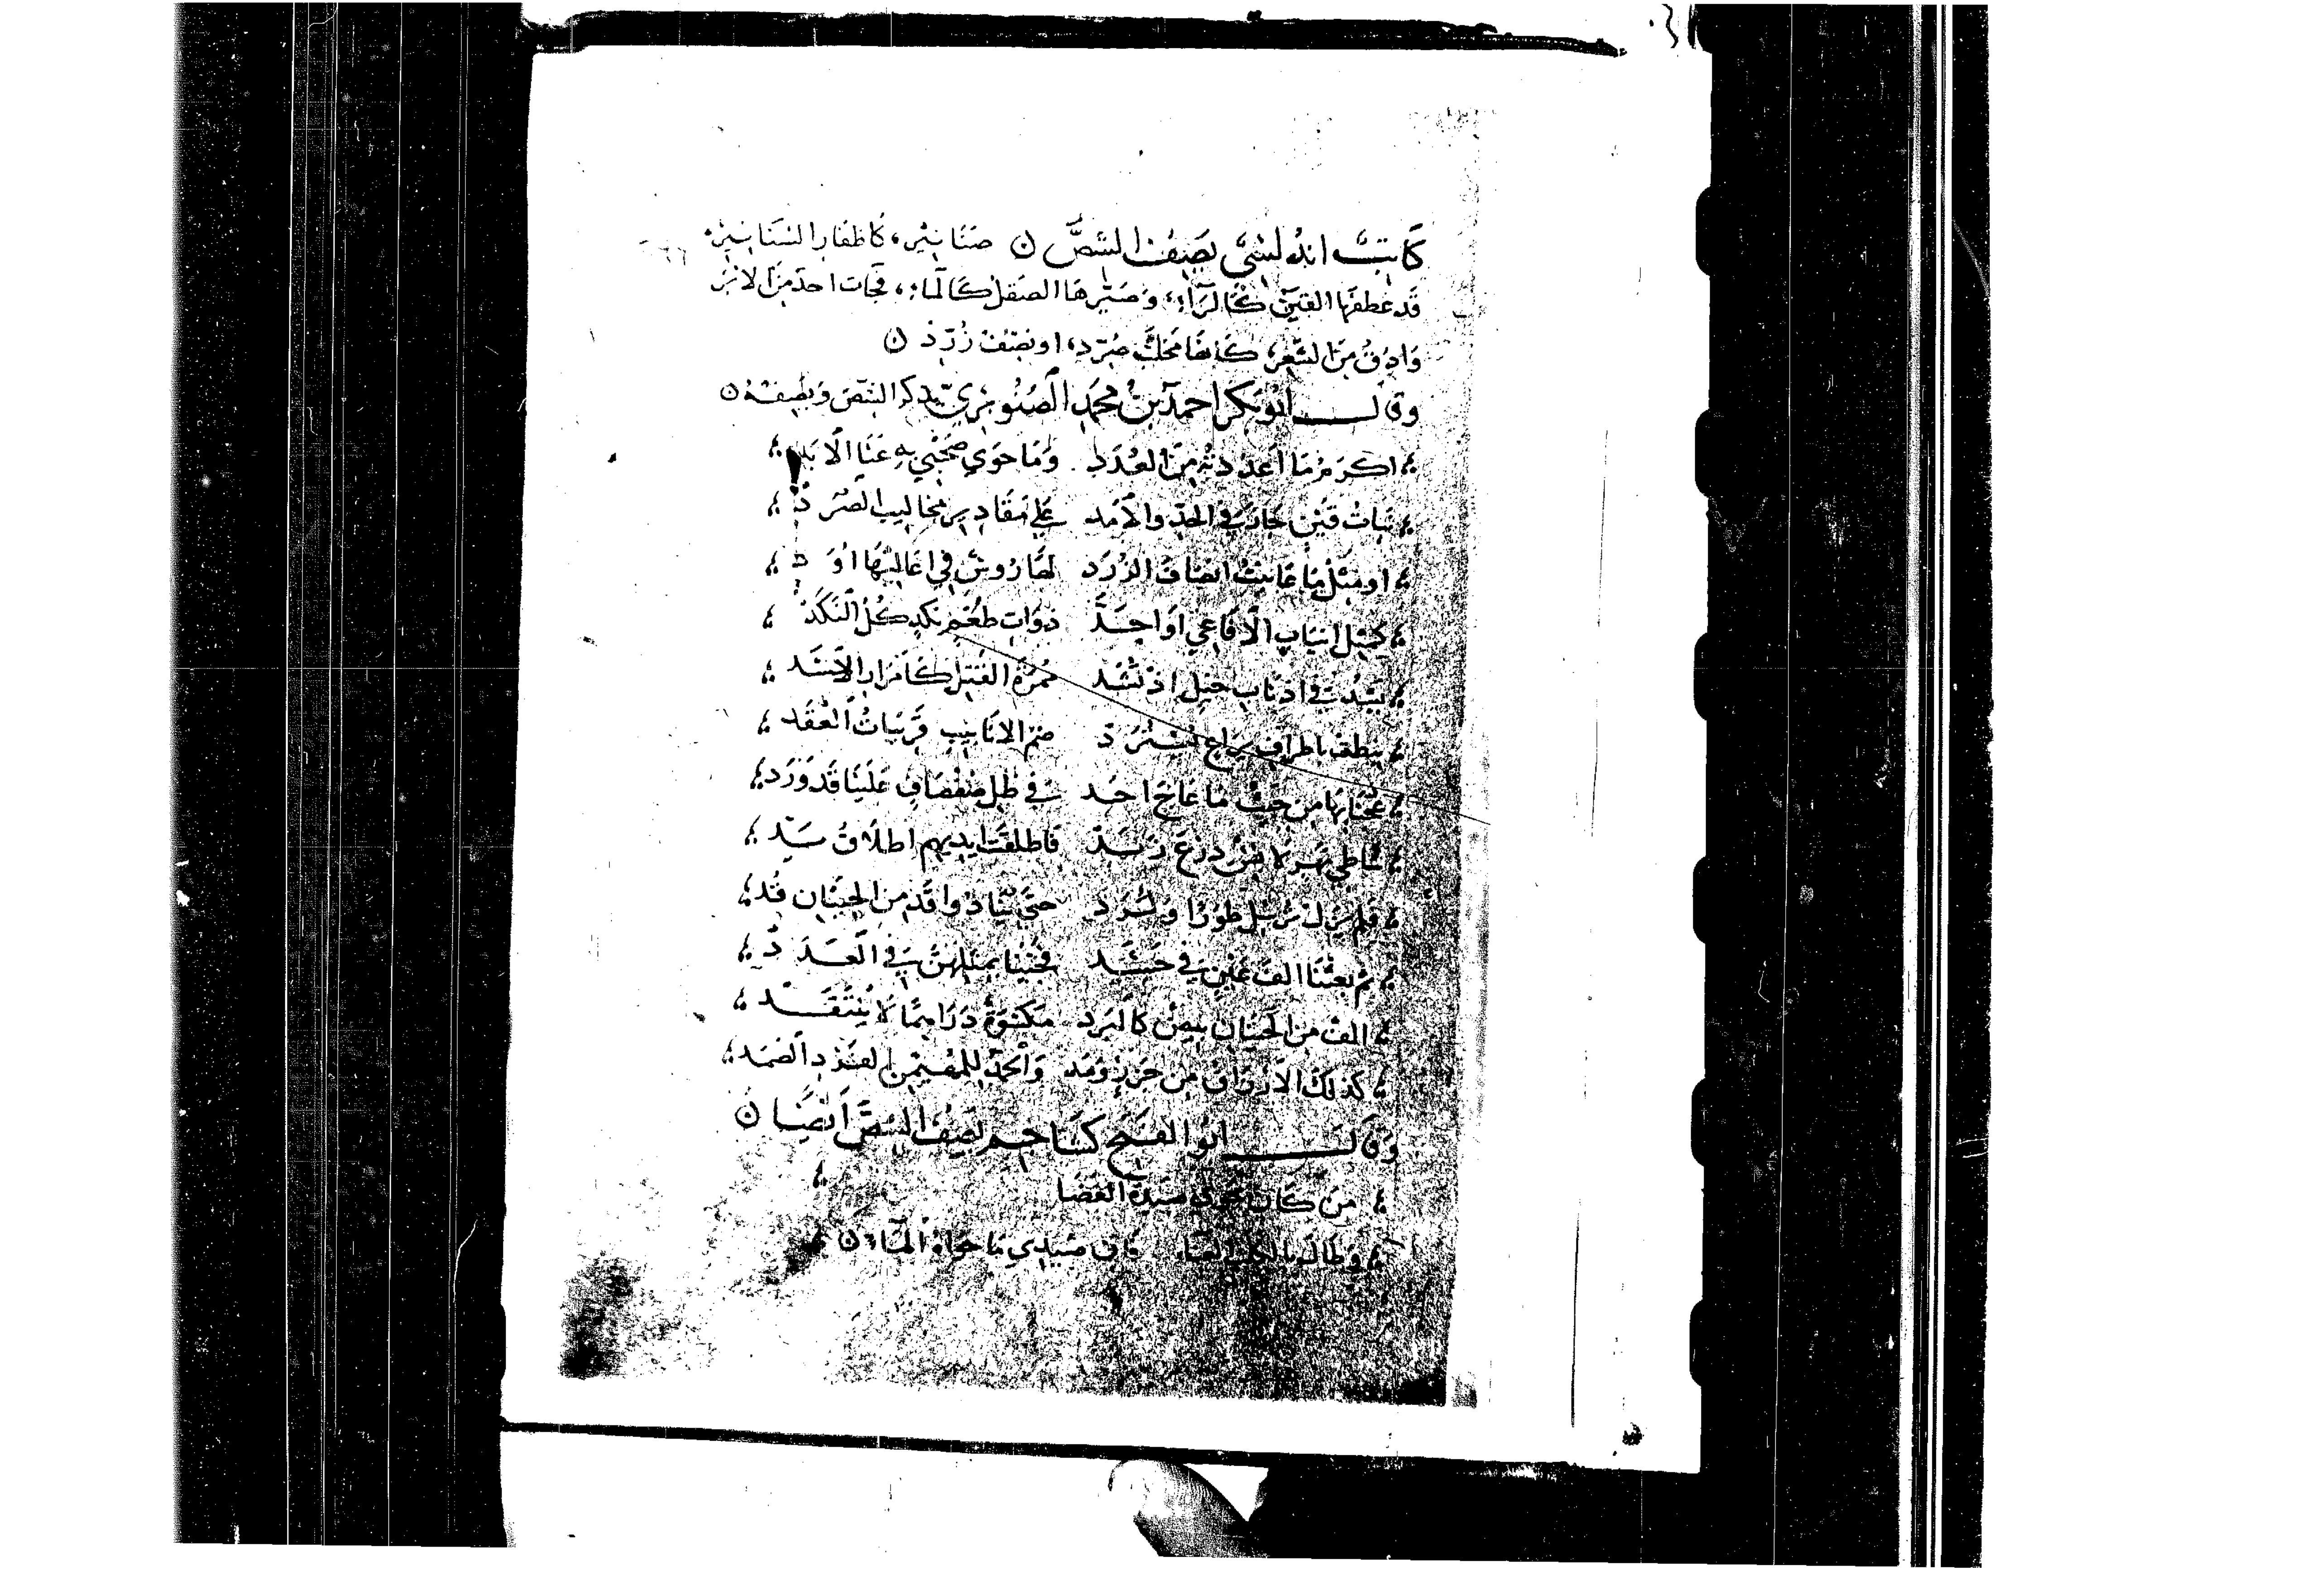 كاتب اندلسي يصف الشص ن صنانير، كاظفار السنانير
قد عطفها القين كالراء، وصيرها الصقل كالماء، فجات احد من الابر
وادق من الشعر، كانها مخلب صرد، او نصف زرد ن
وقال ابو بكر احمد بن محمد الصنوبري يذكر الشص ويصفه ن
اكرم ما اعددته من العدد وما حوى صحبي به غنا الابد
بنات قين في الحد والامد على مقادير مخاليب الصرد
او مثل ما عاينت انصاف الزرد لها روس في اعاليها اود
كمثل انياب الافاعي او احد ذوات طعم نكد كل النكد
تشد في اذناب خيل اذ تشد ممرة الفتل كامرار المسد
باطراف يراع صم الانابيب قريبات العقد
عجنا بها من حيث ما عاج احد في ظل صفصاف علينا قد ورد
شاطي نهر درع زبد فاطلقت ايديهم اطلاق يد
فلم يزل نرسل طورا ونرد حتى من الحيتان قد
ثم بعثنا الف عين في جسد فجينا بمثلهن في العدد
الف من الحيتان بيض كالبرد مكنوة دراهما لا تنتقد
كذلك الارزاق من جزر ومد والحمد للمهيمن الفرد الصمد
وقال ابو الفتح كشاجم يصف الشص ايضا ن
من كان صيده الفضا
وطال صيدي ما حواه الماء ن